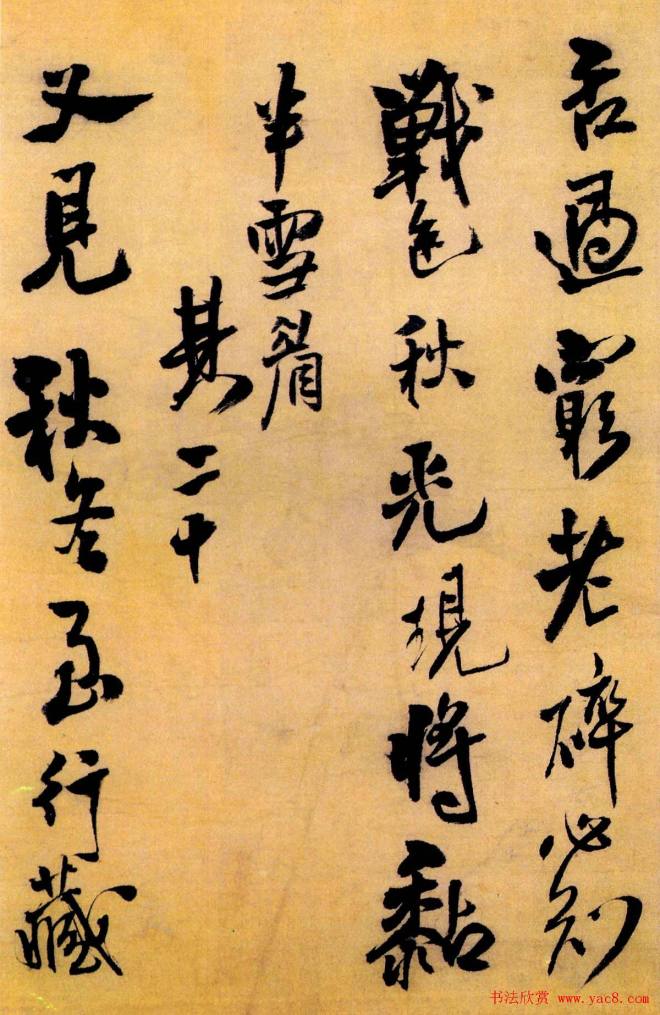 過窮老碎必
戰色秋光現將黏
半雪眉
其二十
又見秋冬行藏
书法欣赏 www.yac8.com